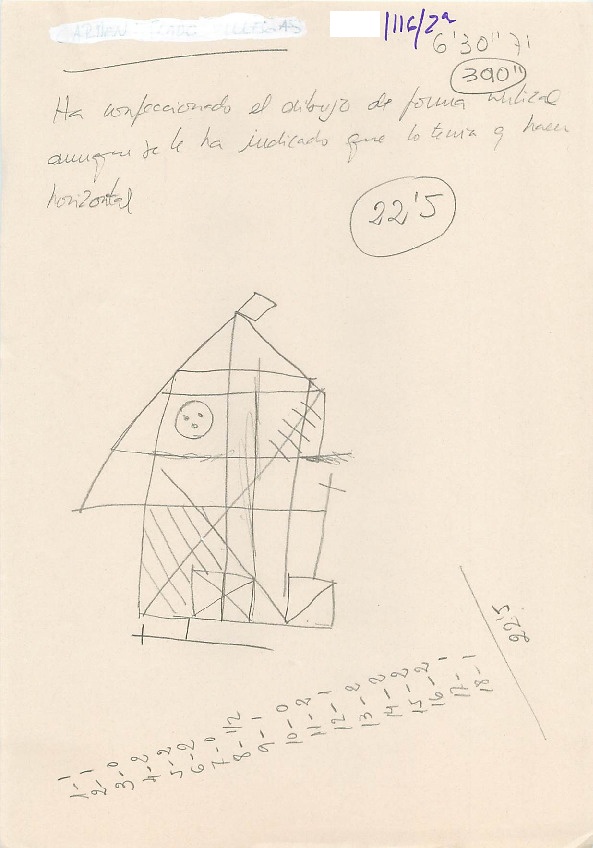 116/2ª
6'30" 7'
390"
Ha confeccionado el dibujo de forma vertical
aunque se le ha indicado que lo tenia q hacer
horizontal
22'5
1-1
2-1
3-0
4-2
5-2
6-2
7-0
8-1/2
9-1
10-0
11-2
12-1
13-2
14-2
15-2
16-2
17-1
18-1
22'5